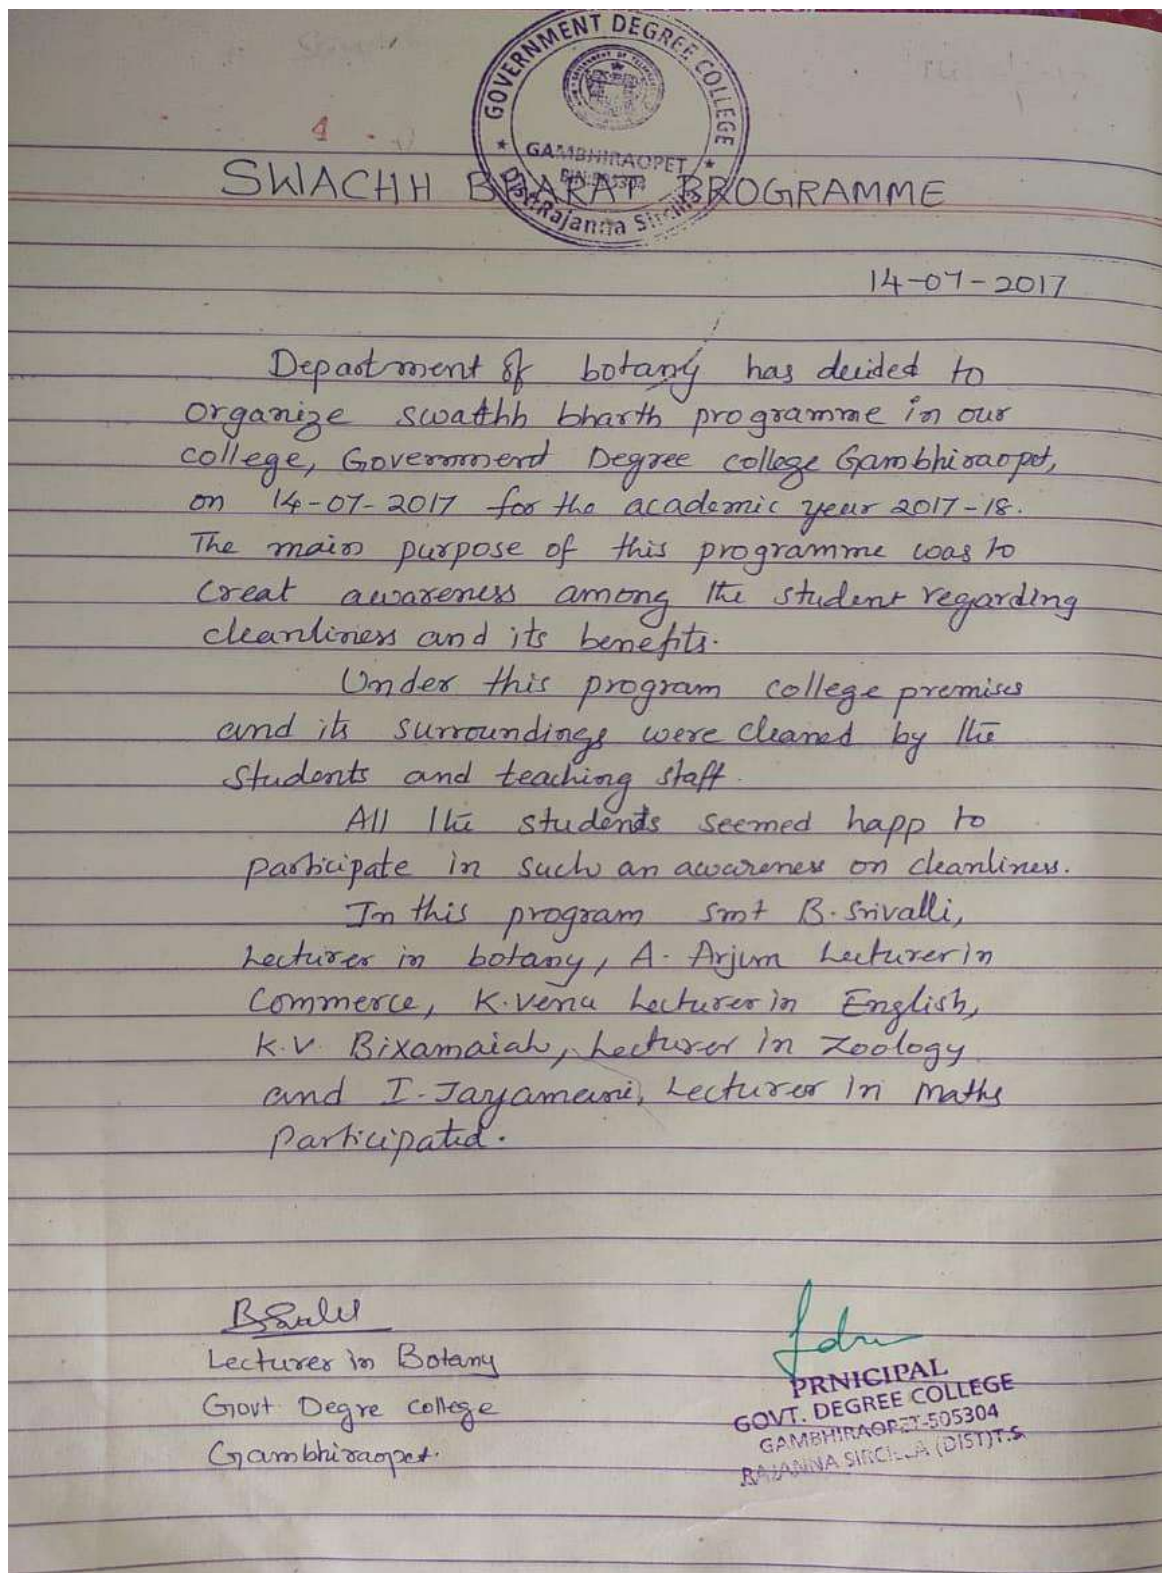 GOVERNMENT DEGREE COLLEGE
GAMBHIRAOPET
PIN:505304
Dist:Rajanna Sircilla
4
SWACHH BHARAT PROGRAMME
14-07-2017
Department of botany has decided to
organize swathh bharth programme in our
college, Government Degree college Gambhiraopet,
on 14-07-2017 for the academic year 2017-18.
The main purpose of this programme was to
Creat awareness among the student regarding
cleanliness and its benefits.
Under this program college premises
and its surroundings were cleaned by the
students and teaching staff.
All the students seemed happ to
participate in such an awareness on cleanliness.
In this program smt B. Srivalli,
Lecturer in botany, A. Arjun Lecturer in
Commerce, K. Venu Lecturer in English,
K.V. Bixamaiah, Lecturer in Zoology
and I. Jayamani, Lecturer in maths
Participated.
Lecturer in Botany
Govt Degre college
Gambhiraopet.
PRNICIPAL
GOVT. DEGREE COLLEGE
GAMBHIRAOPET-505304
RAJANNA SIRCILLA (DIST)T.S.